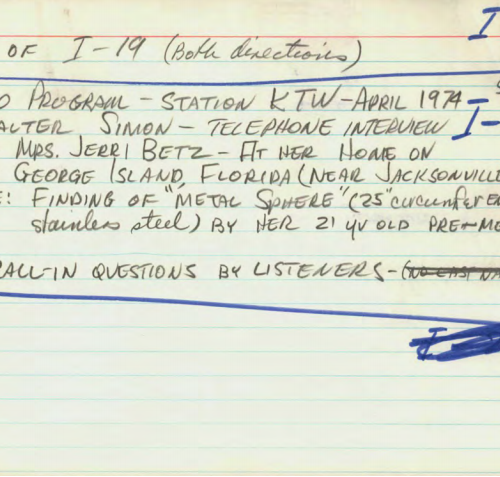 I
OF I-19 (Both directions)
O PROGRAM - STATION KTW - APRIL 1974 -
ALTER SIMON - TELEPHONE INTERVIEW I-
MRS. JERRI BETZ - AT HER HOME ON
GEORGE ISLAND, FLORIDA (NEAR JACKSONVILLE
E: FINDING OF "METAL SPHERE" (25" circumferen
stainless steel) BY HER 21 yr OLD PRE-ME
CALL-IN QUESTIONS BY LISTENERS - (NO LAST NA